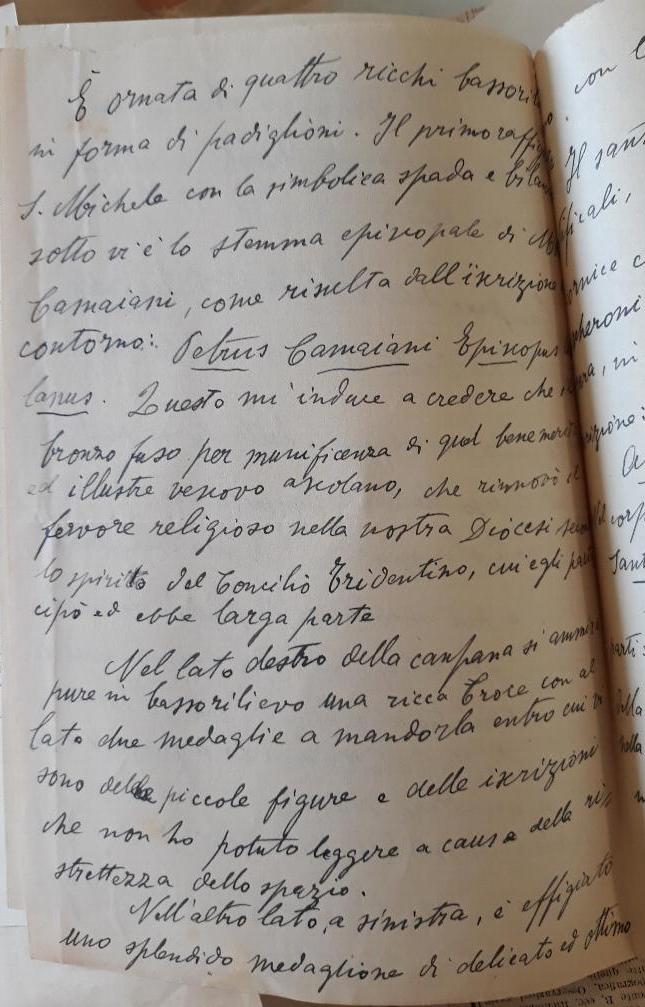 È ornata di quattro ricchi bassori
in forma di padiglioni. Il primo raffi
S. Michele con la simbolica spada e bilan
sotto vi è lo stemma episcopale di
Camaiani, come risulta dall'iscrizione
contorno: Petrus Camaiani Episcopus
lanus. Questo mi induce a credere che
bronzo fuso per munificenza di quel benemeri
ed illustre vescovo ascolano, che rinnovò il
fervore religioso nella nostra Diocesi secon
lo spirito del Concilio Tridentino, cui egli parte
cipò ed ebbe larga parte
Nel lato destro della campana si ammira
pure in bassorilievo una ricca Croce con al
lato due medaglie a mandorla entro cui vi
sono delle piccole figure e delle iscrizioni
che non ho potuto leggere a causa della ri
strettezza dello spazio.
Nell'altro lato, a sinistra, è effigiato
uno splendido medaglione di delicato ed ottimo
con
Il san